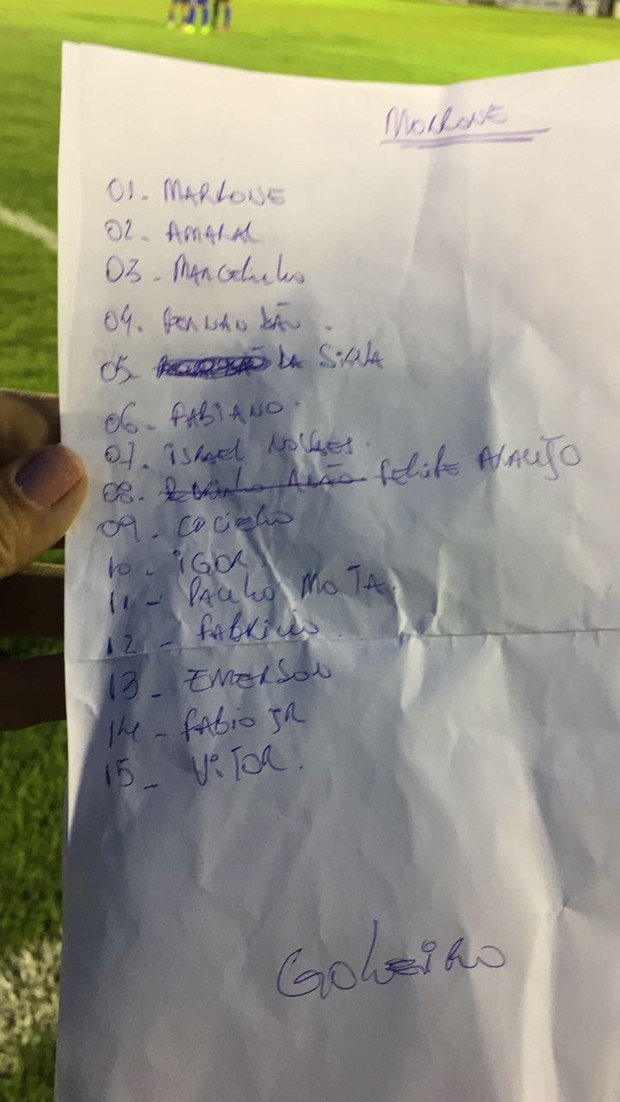 MARRONE
01- MARRONE
02- AMARAL
03- MARCELINHO
04- FERNANDÃO.
05- DA SILVA
06- FABIANO.
07- ISRAEL NOVAES.
08- Felipe ARAUJO
09-
10- IGOR
11- PAULO MOTA.
12- FABRICIO.
13- EMERSON
14- FABIO JR
15- VITOR.
GOLEIRO